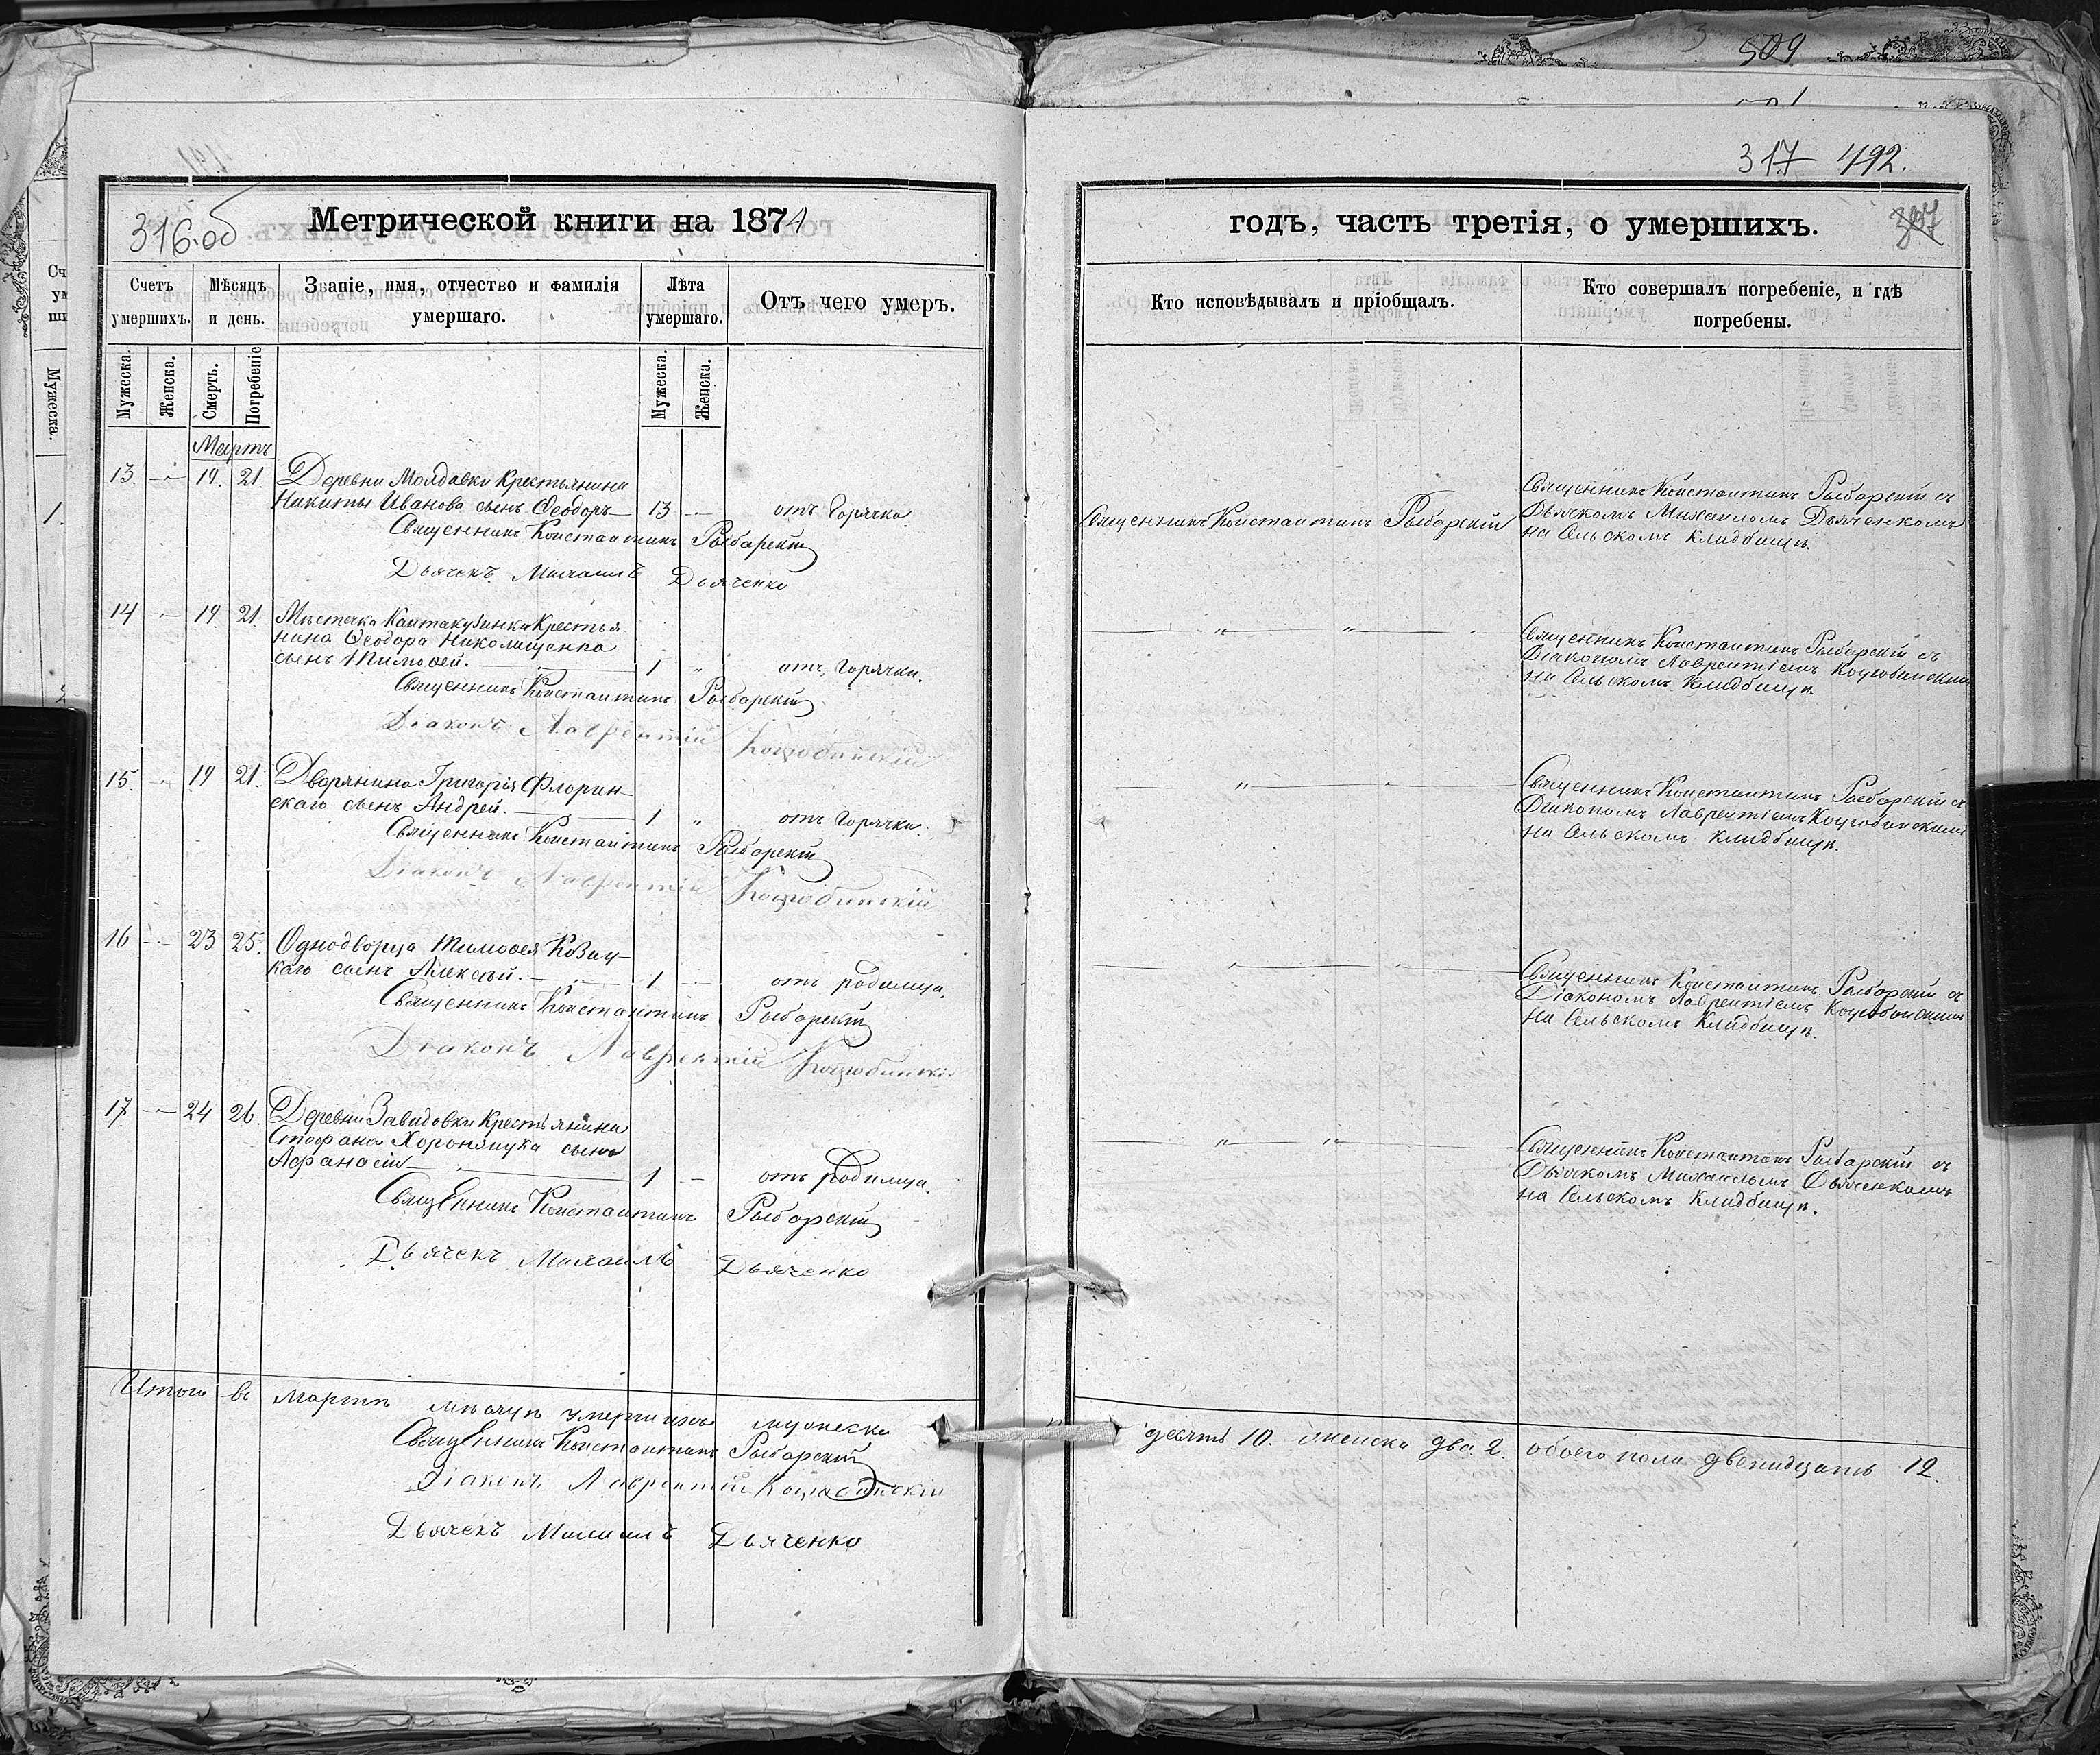 509
317 492.
316.об
Метрической книги на 1871
годъ, часть третія, о умершихъ.
Счетъ умершихъ.
Мѣсяцъ и день.
Званіе, имя, отчество и фамилія умершаго.
Лѣта умершаго.
Отъ чего умеръ.
Кто исповѣдывалъ и пріобщалъ.
Кто совершалъ погребеніе, и гдѣ погребены.
Мужеска.
Женска.
Смерть.
Погребеніе
Мужеска.
Женска.
Мартъ
13. 19. 21. Деревни Молдавки Крестьянина
Никиты Иванова сынъ Ѳеодоръ 13 отъ Горячка.
Священникъ Константинъ Рыбарскій
Дьячекъ Михаилъ Дьяченко
Священникъ Константинъ Рыбарскій
Священникъ Константинъ Рыбарскій съ
Дьячкомъ Михаиломъ Дьяченкомъ
на Сельскомъ Кладбищѣ.
14 19. 21. Мѣстечка Кантакузинки Крестья-
нина Ѳеодора Николаенка
сынъ Тимоѳей. 1 " отъ Горячки.
Священникъ Константинъ Рыбарскій
Діаконъ Лаврентій Коцюбинскій
Священникъ Константинъ Рыбарскій съ
Діакономъ Лаврентіемъ Коцюбинскимъ
на Сельскомъ Кладбищѣ.
15. 19 21. Дворянина Григорія Флорин-
скаго сынъ Андрей. 1 " отъ Горячки.
Священникъ Константинъ Рыбарскій
Діаконъ Лаврентій Коцюбинскій
Священникъ Константинъ Рыбарскій съ
Діакономъ Лаврентіемъ Коцюбинскимъ
на Сельскомъ Кладбищѣ.
16 23 25. Однодворца Тимоѳея Козиц-
каго сынъ Алексѣй. 1 отъ родимца.
Священникъ Константинъ Рыбарскій
Діаконъ Лаврентій Коцюбинскій
Священникъ Константинъ Рыбарскій съ
Діакономъ Лаврентіемъ Коцюбинскимъ
на Сельскомъ Кладбищѣ.
17. 24 26. Деревни Завидовки Крестьянина
Стефана сынъ
Афанасій 1 отъ родимца.
Священникъ Константинъ Рыбарскій
Дьячекъ Михаилъ Дьяченко
Священникъ Константинъ Рыбарскій съ
Дьячкомъ Михаиломъ Дьяченкомъ
на Сельскомъ Кладбищѣ.
Итого въ Мартѣ мѣсяцѣ умершихъ мужеска
десять 10. женска два. 2. обоего пола двенадцать 12.
Священникъ Константинъ Рыбарскій
Діаконъ Лаврентій Коцюбинскій
Дьячекъ Михаилъ Дьяченко